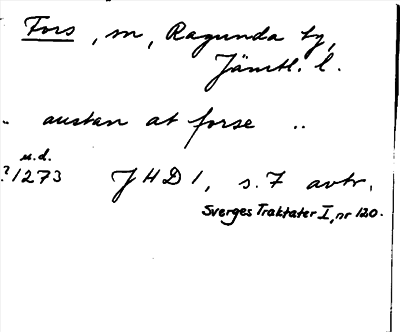 Fors, m, Ragunda sn,
Jämtl. l.
.. austan at forse ..
u.d.
?1273 JHD 1, s. 7 avtr.
Sverges Traktater I, nr 120.